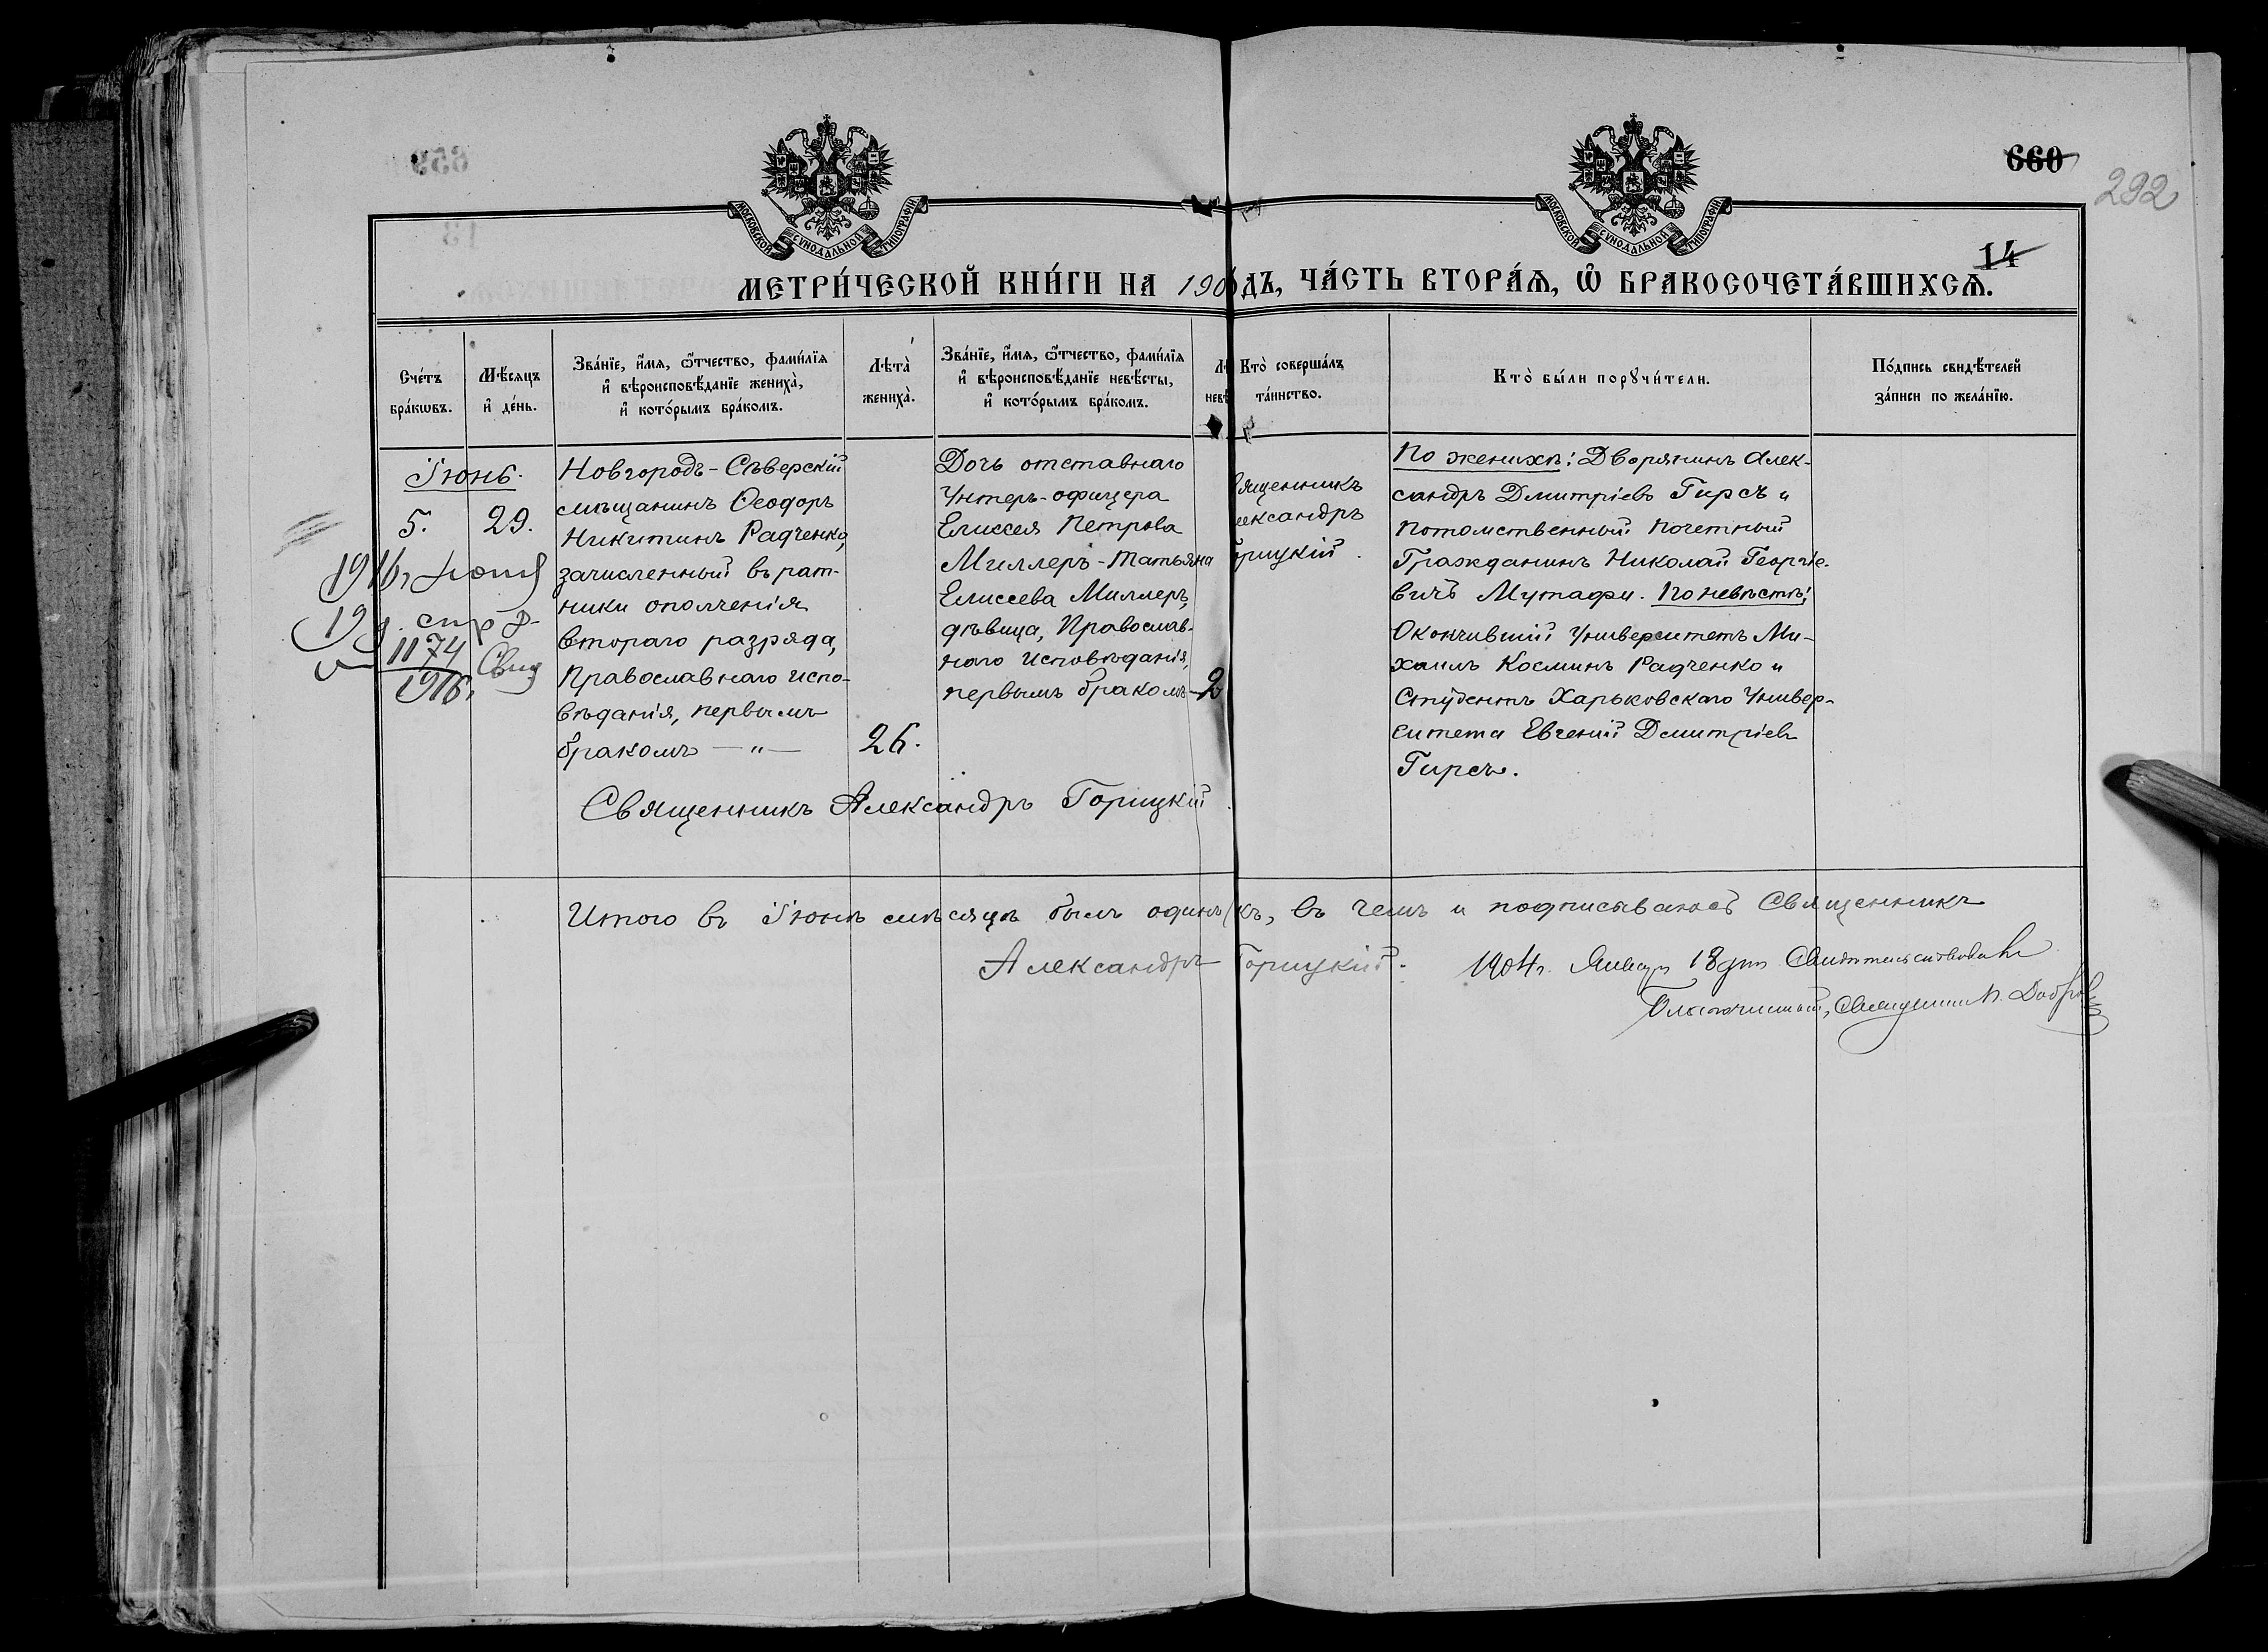 660
292
14
МОСКОВСКОЙ СѴНОДАЛЬНОЙ ТИПОГРАФІИ
МОСКОВСКОЙ СѴНОДАЛЬНОЙ ТИПОГРАФІИ
МЕТРИ́ЧЕСКОЙ КНИ́ГИ НА 190 ДЪ, ЧА́СТЬ ВТОРА́Ѧ, Ѽ БРАКОСОЧЕТА́ВШИХСѦ.
Сче́тъ
бра́кѡвъ.
Мѣ́сяцъ
и҆ де́нь.
Зва́нїе, и҆́мя, ѻ҆́тчество, фами́лїя
и҆ вѣроисповѣ́данїе жениха̀,
и҆ кото́рымъ бра́комъ.
Лѣта̀
жениха̀.
Зва́нїе, и҆́мя, ѻ҆́тчество, фами́лїя
и҆ вѣроисповѣ́данїе невѣ́сты,
и҆ кото́рымъ бра́комъ.
Кто̀ соверша́лъ
та́инство.
Кто̀ бы́ли порꙋчи́тели.
По́дпись свидѣ́телей
за́писи по жела́нїю.
Іюнь.
5.
29.
1916 г. Іюня
19 д.
1174
1916 г.
Свид
Новгородъ-Сѣверскій
мѣщанинъ Ѳеодоръ
Никитинъ Радченко,
зачисленный въ рат-
ники ополченія
втораго разряда,
Православнаго испо-
вѣданія, первымъ
бракомъ — „ —
26.
Дочь отставнаго
Унтеръ-офицера
Елиссея Петрова
Миллеръ - Татьяна
Елисеева Миллеръ,
дѣвица, Православ-
наго исповѣданія,
первымъ бракомъ - 2
ященникъ
лександръ
рицкій.
По женихѣ: Дворянинъ Алек-
сандръ Дмитріевъ Гирсъ и
Потомственный Почетный
Гражданинъ Николай Георгіе-
вичъ Мутафи. По невѣстѣ:
Окончившій Университетъ Ми-
хаилъ Косминъ Радченко и
Студентъ Харьковскаго Универ-
ситета Евгеній Дмитріевъ
Гирсъ.
Священникъ Александръ Горицкій
Итого въ Іюнѣ мѣсяцѣ былъ одинъ къ, въ чемъ и подписываюсь Священникъ
Александръ Горицкій.
1904 г. Января 18 дня Свидѣтельствовалъ
Благочинный, Священникъ